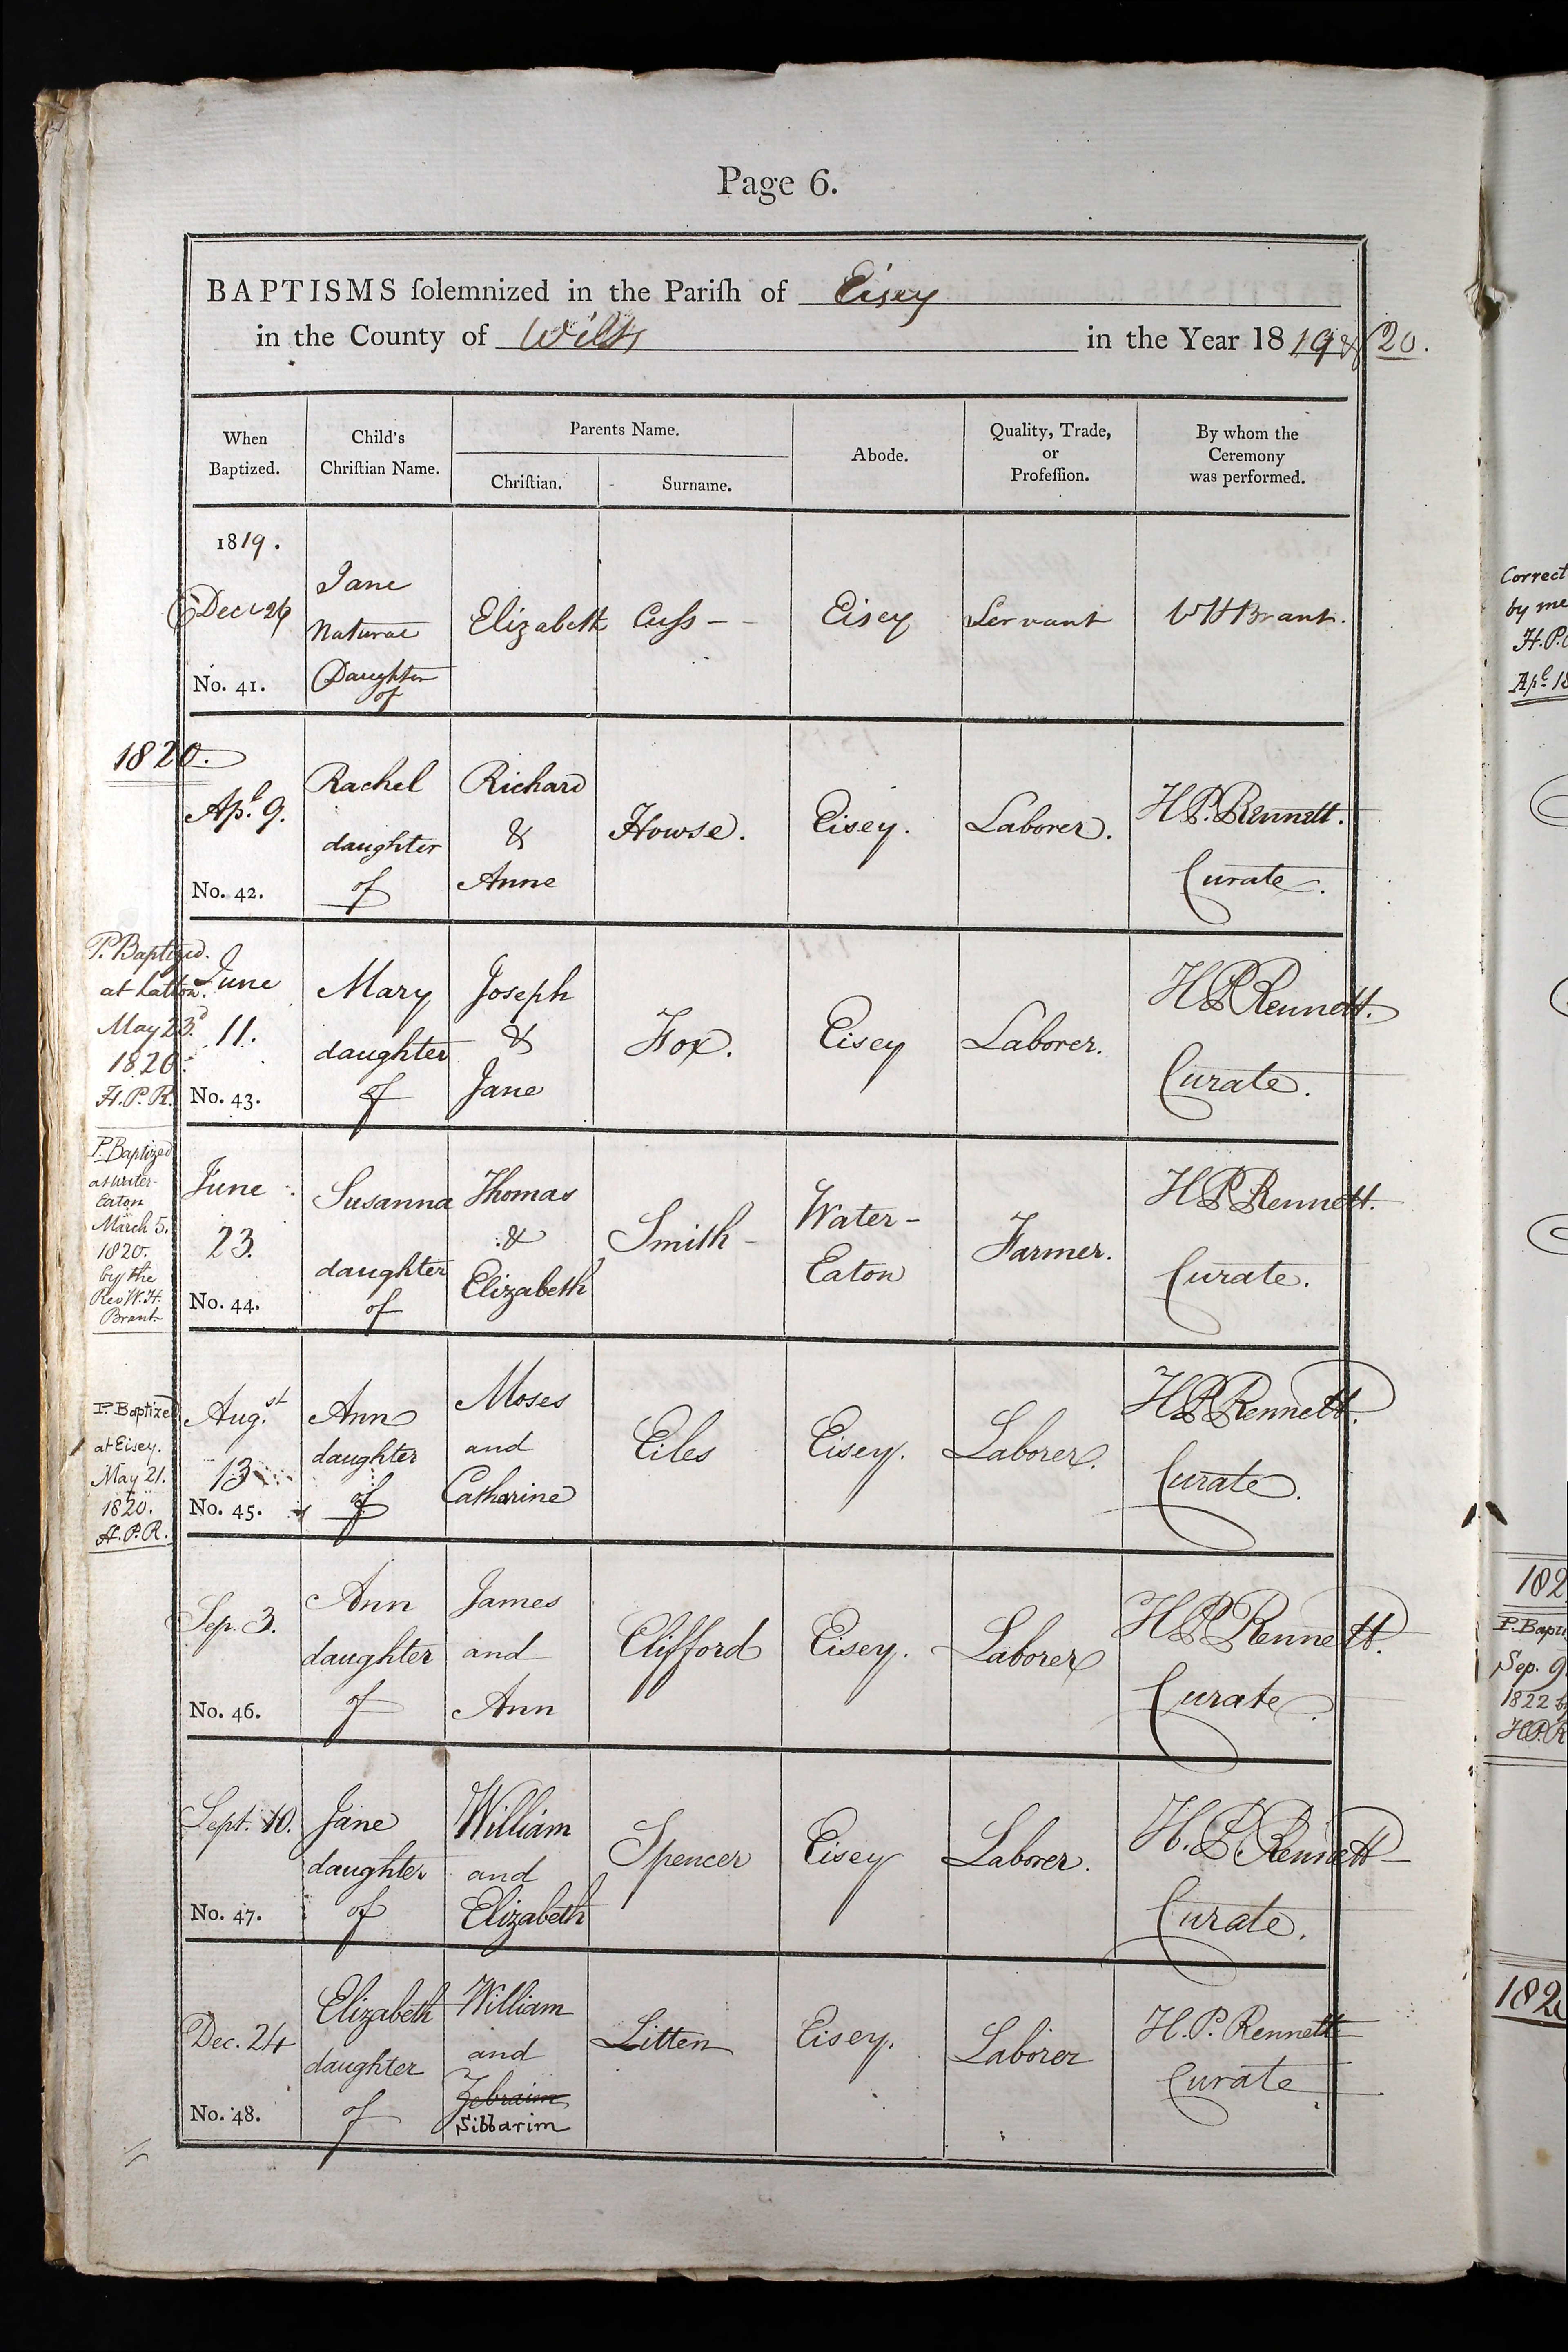 Page 6.
BAPTISMS ſolemnized in the Pariſh of Eisey
in the County of Wilts in the Year 18 19 & 20.
When
Baptized.
Child's
Chriſtian Name.
Parents Name.
Chriſtian.
Surname.
Abode.
Quality, Trade,
or
Profeſſion.
By whom the
Ceremony
was performed.
1819.
Dec 26
No. 41.
Jane
Natural
Daughter
of
Elizabeth
Cuſs -
Eisey
Servant
W H Brant.
1820.
Apl. 9.
No. 42.
Rachel
daughter
of
Richard
&
Anne
Howse.
Eisey.
Laborer.
H P. Rennett.
Curate.
P. Baptized.
at Latton.
May 23d.
1820.
H. P. R.
June
11.
No. 43.
Mary
daughter
of
Joseph
&
Jane
Fox.
Eisey
Laborer.
H P Rennett.
Curate.
P. Baptized
at Water-
Eaton
March 5.
1820.
by the
Rev W. H.
Brant
June
23.
No. 44.
Susanna
daughter
of
Thomas
&
Elizabeth
Smith
Water-
Eaton
Farmer.
H P Rennett.
Curate.
P. Baptized
at Eisey.
May 21.
1820.
H. P. R.
Augst.
13
No. 45.
Ann
daughter
of
Moses
and
Catharine
Eiles
Eisey.
Laborer.
H P Rennett.
Curate.
Sep. 3.
No. 46.
Ann
daughter
of
James
and
Ann
Clifford
Eisey.
Laborer
H P Rennett.
Curate.
Sept. 10.
No. 47.
Jane
daughter
of
William
and
Elizabeth
Spencer
Eisey
Laborer.
H. P. Rennett
Curate.
Dec. 24
No. 48.
Elizabeth
daughter
of
William
and
Zebraim
Sibbarim
Litten
Eisey.
Laborer
H. P. Rennett
Curate
Correct
by me
H. P.
Apl. 18
182
P. Bapti
Sep. 9
1822 b
H. P. R
182